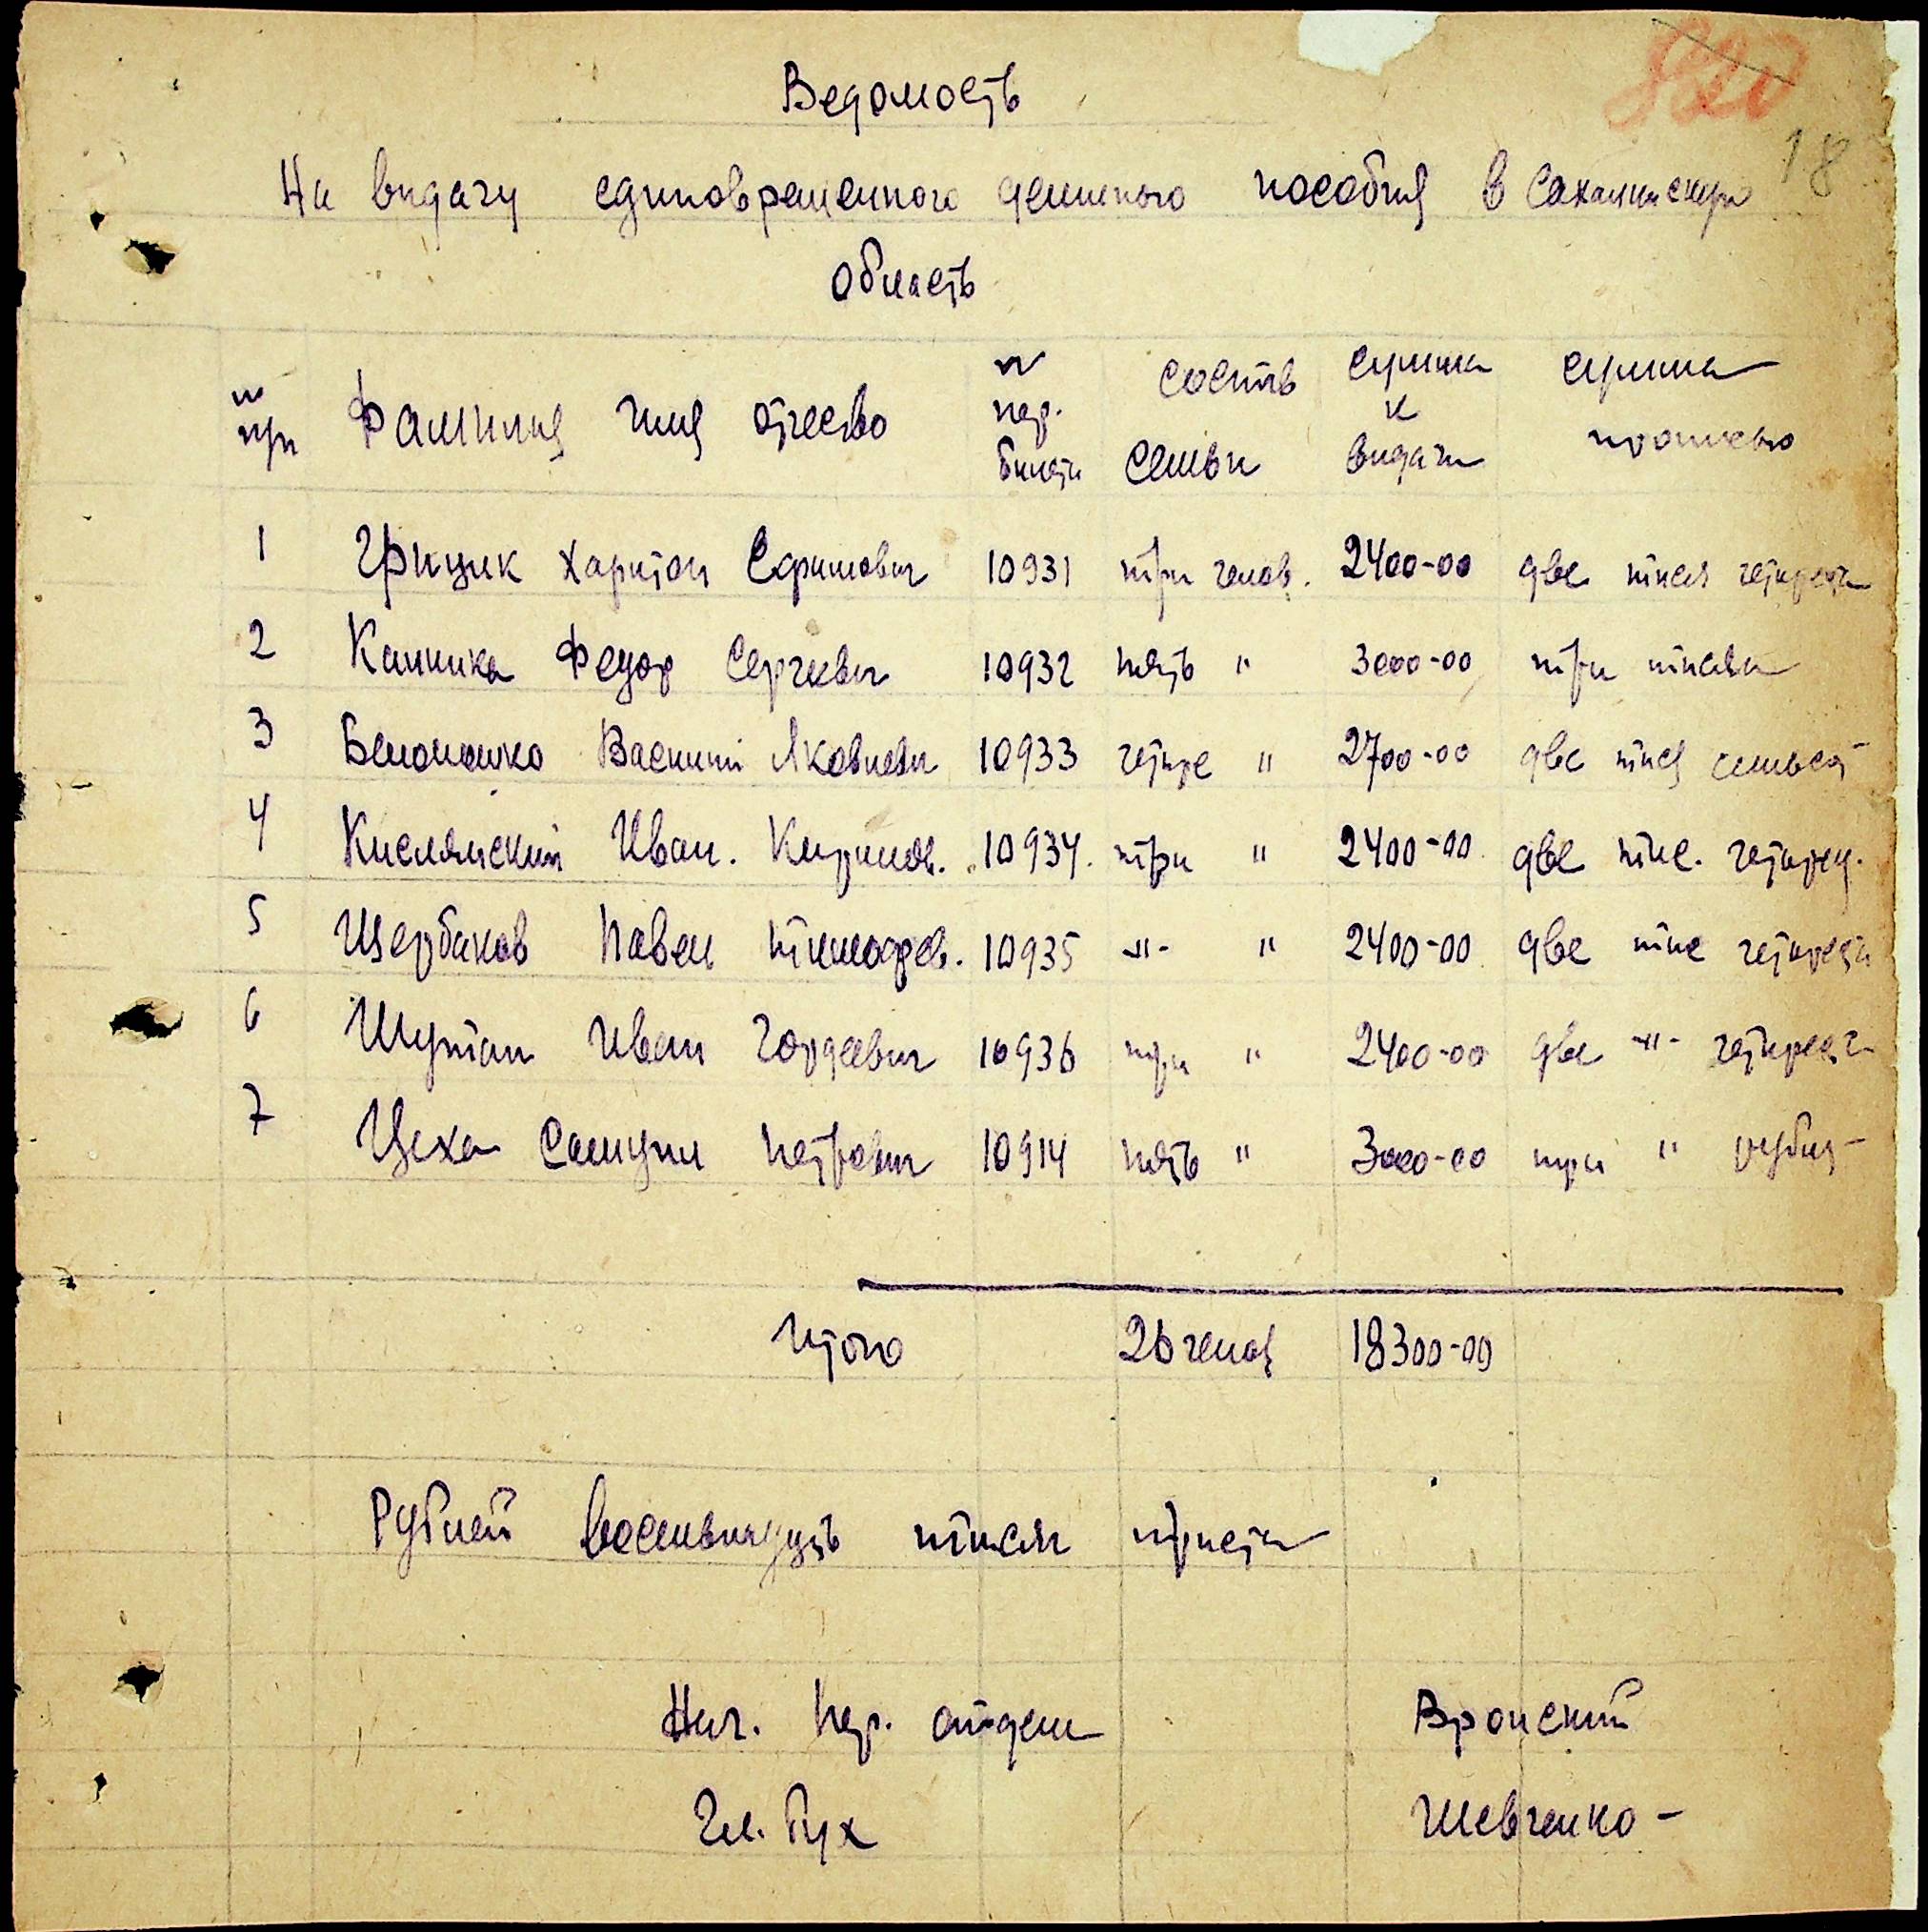 Ведомость
18
На видачу единовременного денежного пособия в Сахалинскую
Область
№ п/п Фамилия Имя Отчество № пер. билета состав семьи сумма к видачи сумма прописью
1 Грицик Харитон Ефимович 10931 три челов. 2400-00 две тися четиреста
2 Каника Федор Сергеевич 10932 пять " 3000-00 три тисячи
3 Белоношко Василий Яковлеви 10933 четире " 2700-00 две тися семьсот
4 Кислянский Иван. Кирилов. 10934 три " 2400-00 две тис. четирес.
5 Щербаков Павел Тимофеев. 10935 -"- " 2400-00 две тис четиреста
6 Шуптан Иван Гордеевич 10936 три " 2400-00 две -"- четирест
7 Цеха Самуил Петрович 10914 пять " 3000-00 три " рубля
Итого 26 челов 18300-00
Рублей восемьнадцать тисяч триста
Нач. Пер. отдела Вронский
Гл. Бух Шевченко